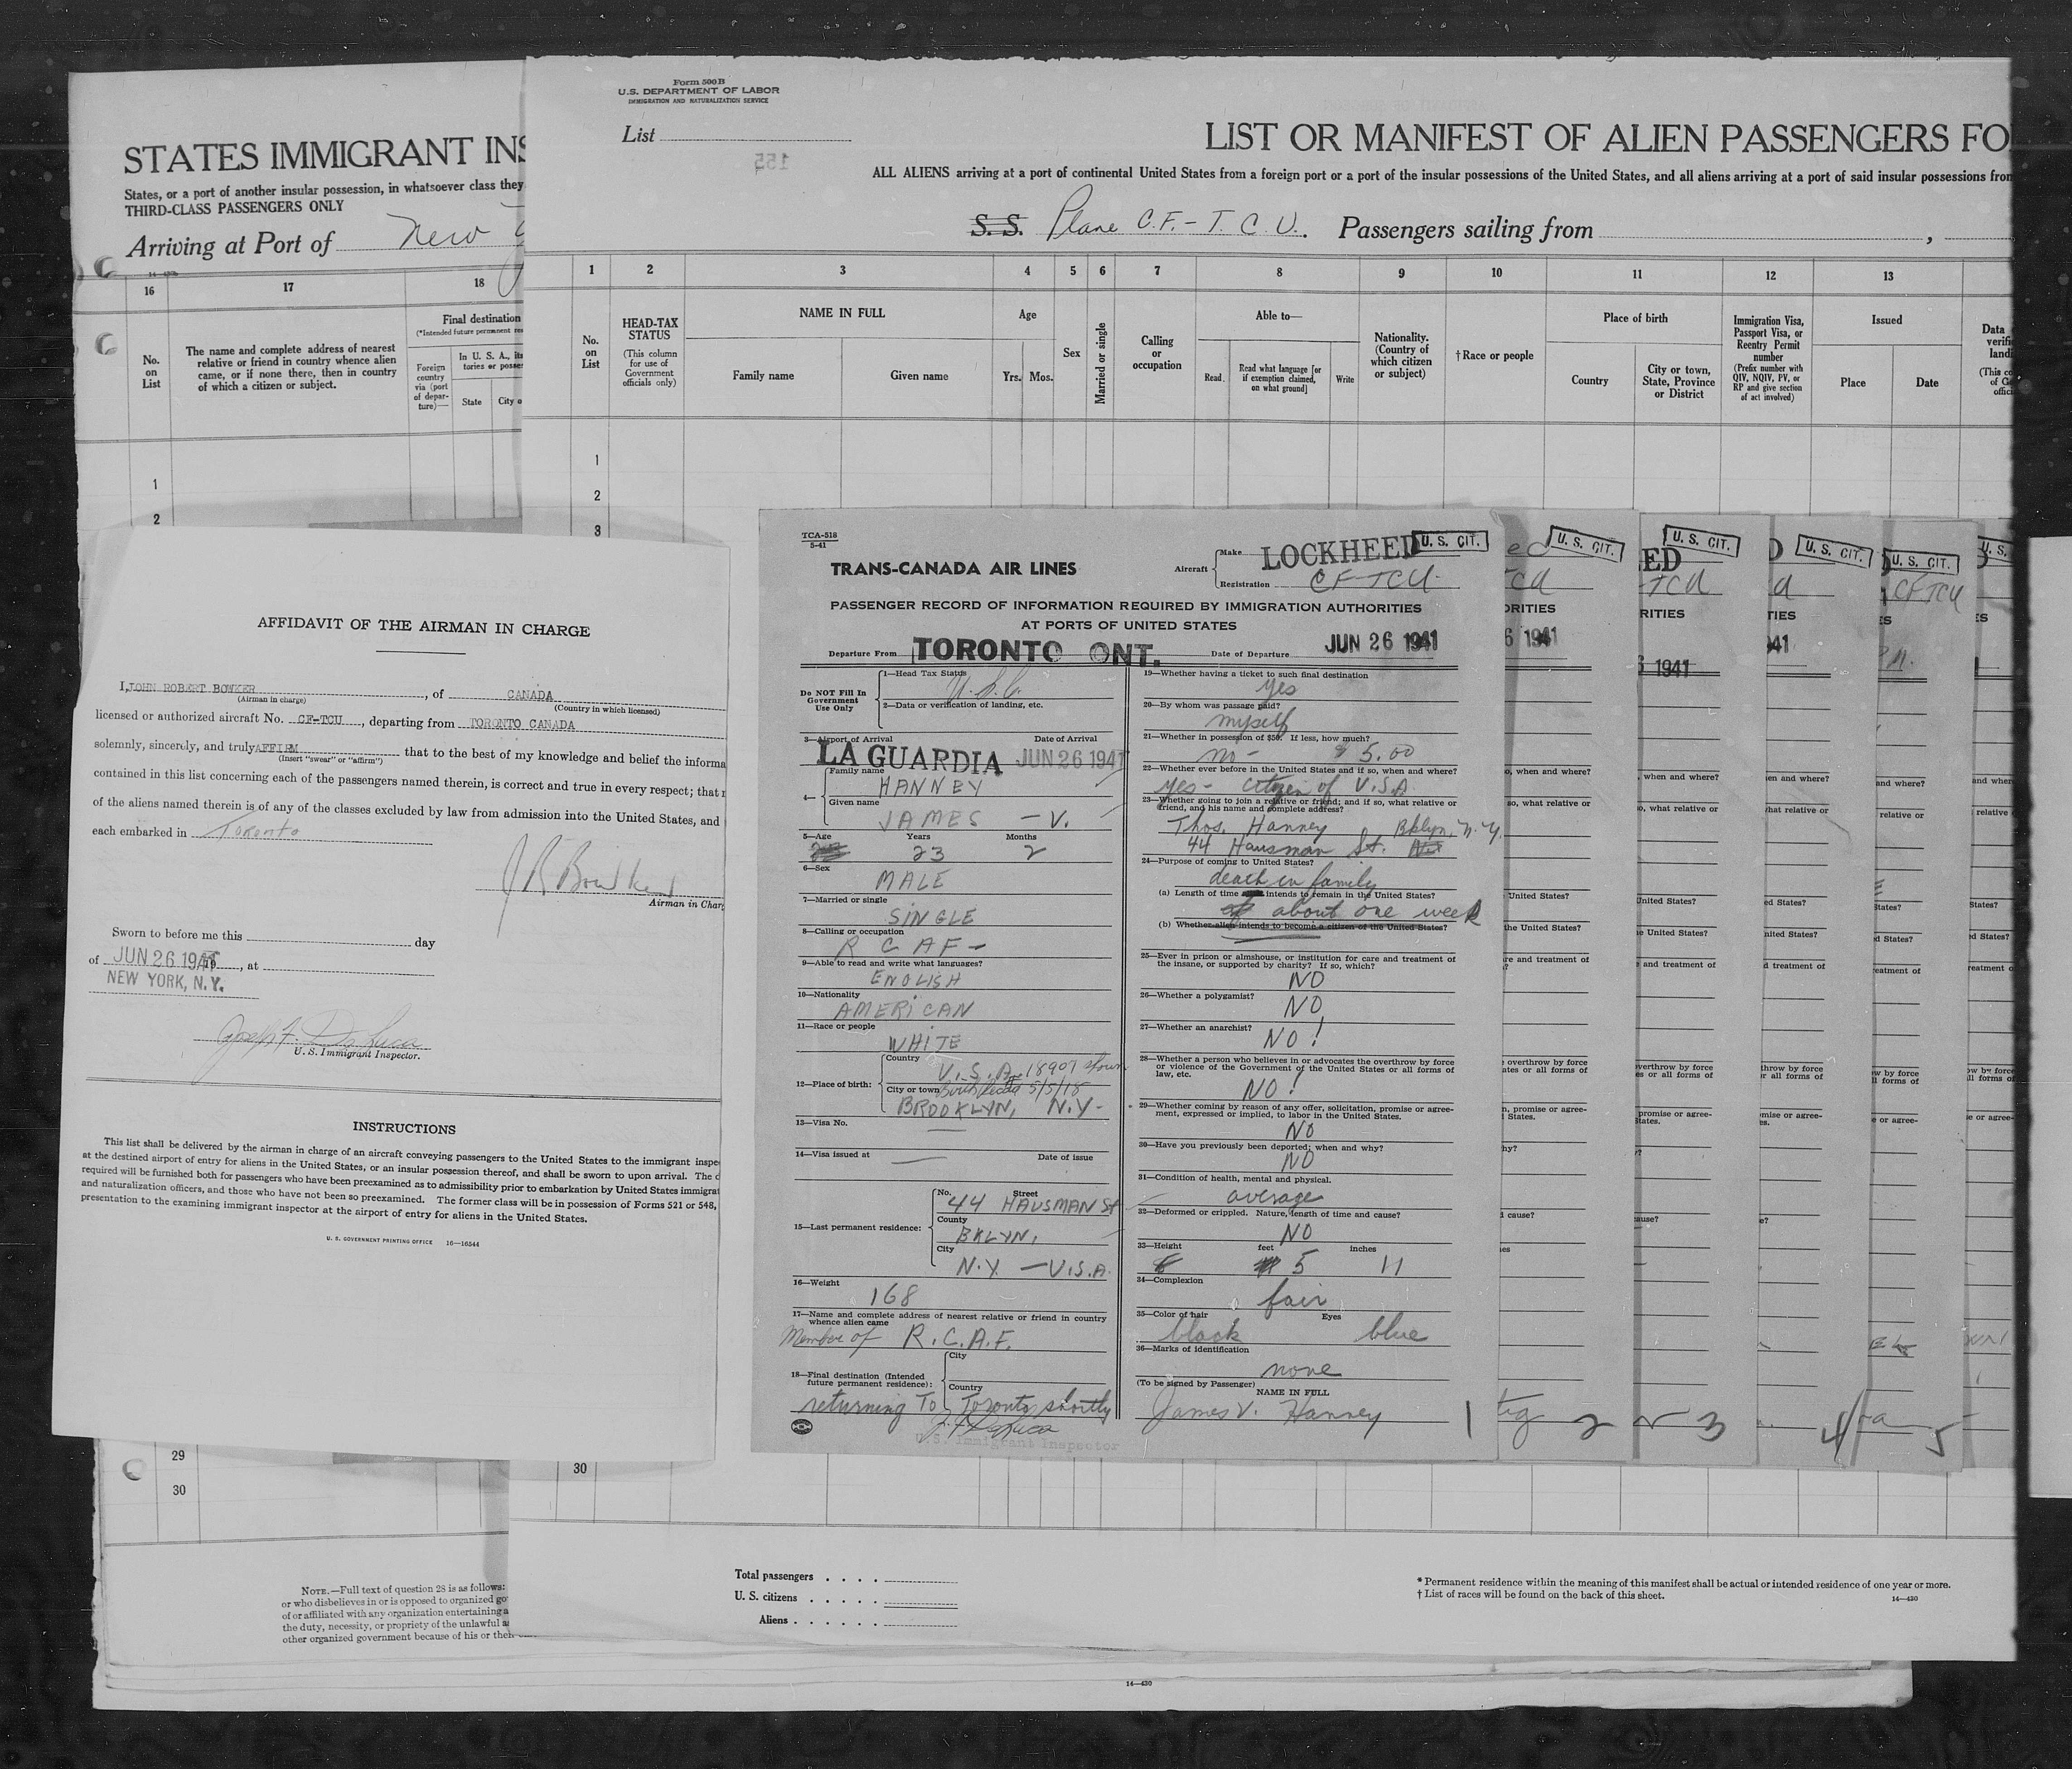 STATES IMMIGRANT INS
States, or a port of another insular possession, in whatsoever class they
THIRD-CLASS PASSENGERS ONLY
Arriving at Port of New
16 17 18
No. on List
The name and complete address of nearest
relative or friend in country whence alien
came, or if none there, then in country
of which a citizen or subject.
Final destination
(*Intended future permanent res
Foreign country via (port of depar-ture)—
In U. S. A., its
tories or posses
State City o
1
2
29
30
NOTE.—Full text of question 28 is as follows:
or who disbelieves in or is opposed to organized go
of or affiliated with any organization entertaining a
the duty, necessity, or propriety of the unlawful as
other organized government because of his or their
Form 500 B
U.S. DEPARTMENT OF LABOR
IMMIGRATION AND NATURALIZATION SERVICE
List
155
LIST OR MANIFEST OF ALIEN PASSENGERS FO
ALL ALIENS arriving at a port of continental United States from a foreign port or a port of the insular possessions of the United States, and all aliens arriving at a port of said insular possessions from
S. S. Plane C.F.-T.C.U. Passengers sailing from ,
1 2 3 4 5 6 7 8 9 10 11 12 13
No. on List
HEAD-TAX STATUS
(This column for use of Government officials only)
NAME IN FULL
Family name Given name
Age
Yrs. Mos.
Sex
Married or single
Calling or occupation
Able to—
Read
Read what language [or if exemption claimed, on what ground]
Write
Nationality. (Country of which citizen or subject)
†Race or people
Place of birth
Country
City or town, State, Province or District
Immigration Visa, Passport Visa, or Reentry Permit number
(Prefix number with QIV, NQIV, PV, or RP and give section of act involved)
Issued
Place Date
Data
verific
landi
(This co
of Go
offic
1
2
3
30
Total passengers . . . .
U. S. citizens . . . . .
Aliens . . . . .
* Permanent residence within the meaning of this manifest shall be actual or intended residence of one year or more.
† List of races will be found on the back of this sheet.
14—430
14—430
AFFIDAVIT OF THE AIRMAN IN CHARGE
I, JOHN ROBERT BOWKER, of CANADA
(Airman in charge) (Country in which licensed)
licensed or authorized aircraft No. CF-TCU, departing from TORONTO CANADA
solemnly, sincerely, and truly AFFIRM that to the best of my knowledge and belief the informa
(Insert "swear" or "affirm")
contained in this list concerning each of the passengers named therein, is correct and true in every respect; that n
of the aliens named therein is of any of the classes excluded by law from admission into the United States, and
each embarked in Toronto
J R Bowker
Airman in Charg
Sworn to before me this day
of JUN 26 1941 19 , at
NEW YORK, N.Y.
Joseph F. De Luca
U. S. Immigrant Inspector.
INSTRUCTIONS
This list shall be delivered by the airman in charge of an aircraft conveying passengers to the United States to the immigrant inspe
at the destined airport of entry for aliens in the United States, or an insular possession thereof, and shall be sworn to upon arrival. The d
required will be furnished both for passengers who have been preexamined as to admissibility prior to embarkation by United States immigrat
and naturalization officers, and those who have not been so preexamined. The former class will be in possession of Forms 521 or 548,
presentation to the examining immigrant inspector at the airport of entry for aliens in the United States.
U. S. GOVERNMENT PRINTING OFFICE 16—16544
TCA-518
5-41
TRANS-CANADA AIR LINES
Aircraft
Make LOCKHEED
Registration CF TCU
U. S. CIT.
PASSENGER RECORD OF INFORMATION REQUIRED BY IMMIGRATION AUTHORITIES
AT PORTS OF UNITED STATES
Departure From TORONTO ONT. Date of Departure JUN 26 1941
Do NOT Fill In Government Use Only
1—Head Tax Status
U.S.C.
2—Data or verification of landing, etc.
3—Airport of Arrival Date of Arrival
LA GUARDIA JUN 26 1941
4—
Family name
HANNEY
Given name
JAMES — V.
5—Age Years Months
23 2
6—Sex
MALE
7—Married or single
SINGLE
8—Calling or occupation
R C A F —
9—Able to read and write what languages?
ENGLISH
10—Nationality
AMERICAN
11—Race or people
WHITE
12—Place of birth:
Country
U.S.A. 18907 shown
City or town Birth 5/5/18
BROOKLYN, N.Y.
13—Visa No.
14—Visa issued at Date of issue
15—Last permanent residence:
No. Street
44 HAUSMAN St
County
BKLYN,
City
N.Y. — U.S.A.
16—Weight
168
17—Name and complete address of nearest relative or friend in country
whence alien came
Member of R.C.A.F.
18—Final destination (Intended future permanent residence):
City
Country
returning To Toronto shortly
U.S. Immigrant Inspector
19—Whether having a ticket to such final destination
yes
20—By whom was passage paid?
myself
21—Whether in possession of $50. If less, how much?
no - $ 5.00
22—Whether ever before in the United States and if so, when and where?
yes - citizen of U.S.A
23—Whether going to join a relative or friend; and if so, what relative or
friend, and his name and complete address?
Thos. Hanney Bklyn, N.Y.
44 Hausman St.
24—Purpose of coming to United States?
death in family
(a) Length of time intends to remain in the United States?
about one week
(b) Whether alien intends to become a citizen of the United States?
25—Ever in prison or almshouse, or institution for care and treatment of
the insane, or supported by charity? If so, which?
NO
26—Whether a polygamist?
NO
27—Whether an anarchist?
NO!
28—Whether a person who believes in or advocates the overthrow by force
or violence of the Government of the United States or all forms of
law, etc.
NO!
29—Whether coming by reason of any offer, solicitation, promise or agree-
ment, expressed or implied, to labor in the United States.
NO
30—Have you previously been deported; when and why?
NO
31—Condition of health, mental and physical.
average
32—Deformed or crippled. Nature, length of time and cause?
NO
33—Height feet inches
5 11
34—Complexion
fair
35—Color of hair Eyes
black blue
36—Marks of identification
none
(To be signed by Passenger) NAME IN FULL
James V. Hanney 1
U. S. CIT.
2
U. S. CIT.
3
U. S. CIT.
4
U. S. CIT.
CF TCU
5